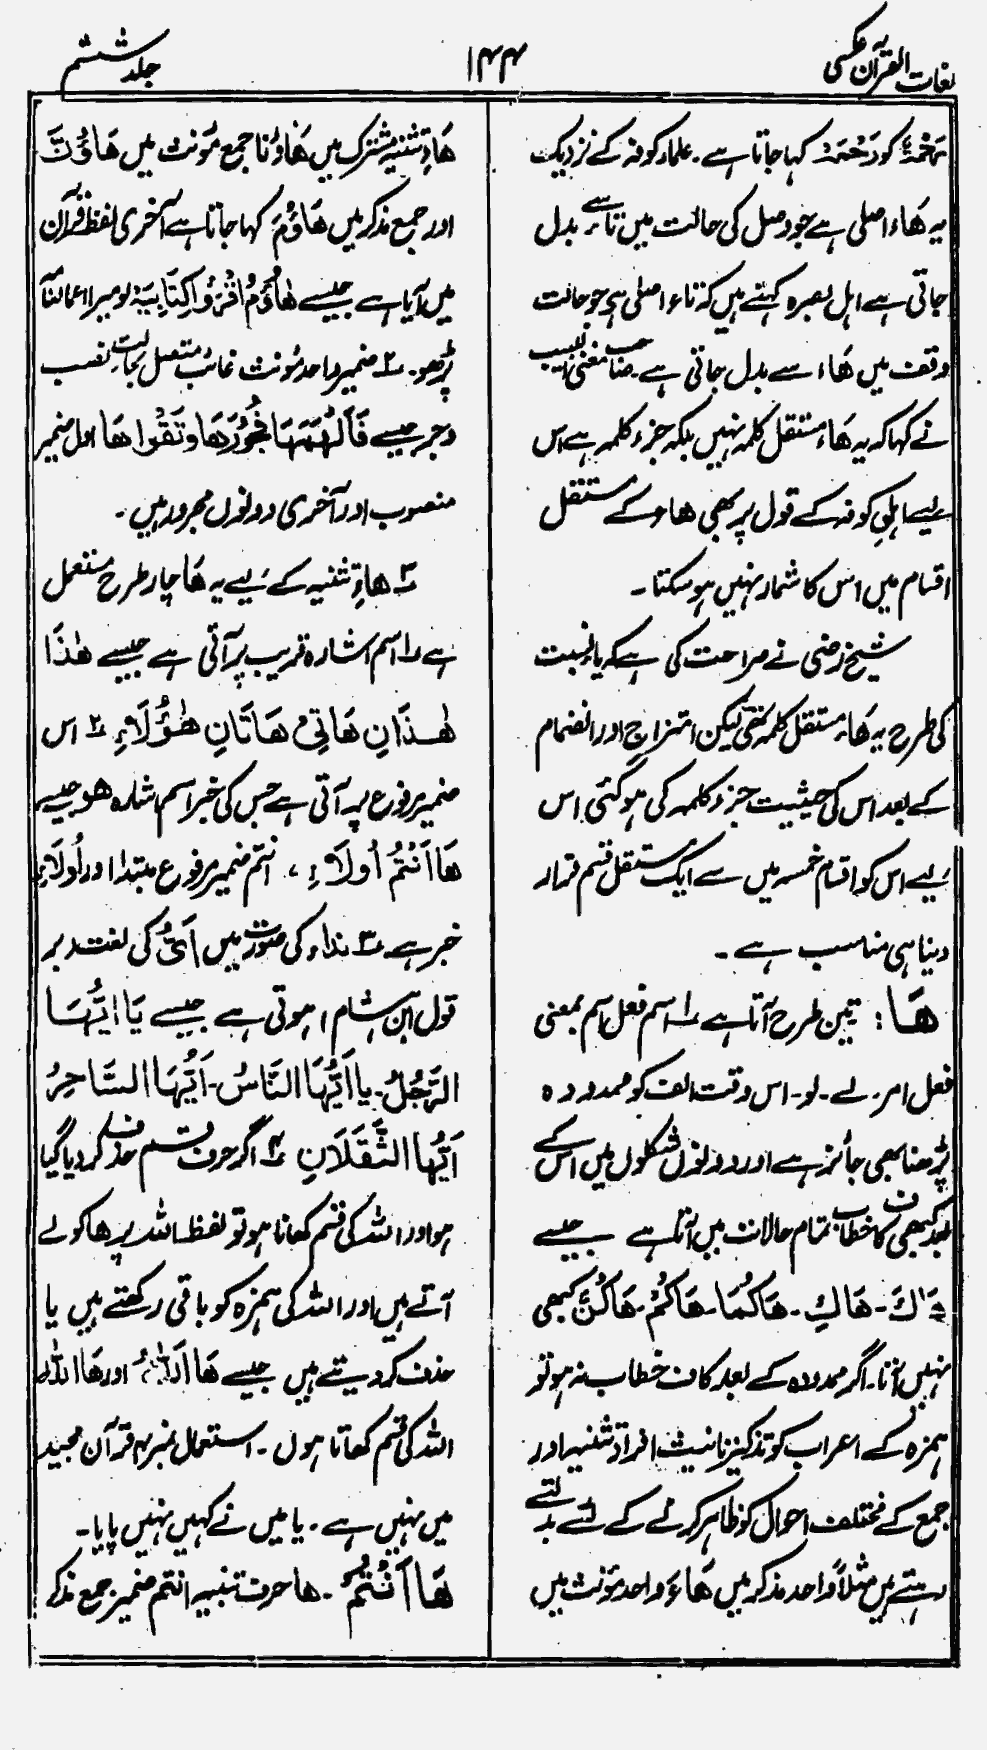 لغات القرآن عکسی
۱۴۴
جلد ششم
رَحْمَۃٌ کو رَحْمَہْ کہا جاتا ہے۔ علماء کوفہ کے نزدیک
یہ ھَاء اصلی ہے جو وصل کی حالت میں تاء سے بدل
جاتی ہے اہل بصرہ کہتے ہیں کہ تاء اصلی ہے جو حالت
وقف میں ھَاء سے بدل جاتی ہے۔ صاحب مغنی اللبیب
نے کہا کہ یہ ھَاء مستقل کلمہ نہیں بلکہ جزء کلمہ ہے اس
لیے اہلِ کوفہ کے قول پر بھی ھاء کے مستقل
اقسام میں اس کا شمار نہیں ہو سکتا۔
شیخ رضی نے صراحت کی ہے کہ یاء نسبت
کی طرح یہ ھَاء مستقل کلمہ تھی لیکن امتزاج اور انضمام
کے بعد اس کی حیثیت جزء کلمہ کی ہو گئی اس
لیے اس کو اقسام خمسہ میں سے ایک مستقل قسم قرار
دینا ہی مناسب ہے۔
ھَا: تین طرح آتا ہے ۱ اسم فعل اسم بمعنی
فعل امر۔ لے۔ لو۔ اس وقت الف کو ممدودہ
پڑھنا بھی جائز ہے اور دونوں شکلوں میں اس کے
بعد کبھی کاف خطاب تمام حالات میں آتا ہے جیسے
ھَاكَ۔ ھَاكِ۔ ھَاكُمَا۔ ھَاكُمْ۔ ھَاكُنَّ کبھی
نہیں آتا۔ اگر ممدودہ کے بعد کاف خطاب نہ ہو تو
ہمزہ کے اعراب کو تذکیر تانیث افراد تثنیہ اور
جمع کے مختلف احوال کو ظاہر کرنے کے لئے بدلتے
رہتے ہیں مثلاً واحد مذکر میں ھَاءَ واحد مؤنث میں
ھَاءِ تثنیہ مشترک میں ھَاؤُنَا جمع مؤنث میں ھَاؤُنَّ
اور جمع مذکر میں ھَاؤُمْ کہا جاتا ہے آخری لفظ قرآن
میں آیا ہے جیسے ھَاؤُمُ اقْرَءُوا كِتَابِيَهْ لو میرا اعمالنامہ
پڑھو۔ ۲ ضمیر واحد مؤنث غائب متصل بحالت نصب
و جر جیسے فَاَلْهَمَهَا فُجُوْرَهَا وَتَقْوٰاهَا اول ضمیر
منصوب اور آخری دونوں مجرور ہیں۔
۳ ھاءِ تنبیہ کے لیے یہ ھَا چار طرح مستعمل
ہے ۱ اسم اشارہ قریب پر آتی ہے جیسے ھٰذَا
ھٰذَانِ ھَاتِیْ ھَاتَانِ ھٰؤُلَاءِ ۲ اس
ضمیر مرفوع پہ آتی ہے جس کی خبر اسم اشارہ ھو جیسے
ھَا اَنْتُمْ اُولَاءِ، انتم ضمیر مرفوع مبتدا اور اُولَاءِ
خبر ہے ۳ نداء کی صورت میں اَیُّ کی لغت (بر
قول ابن ہشام) ہوتی ہے جیسے يَا اَيُّهَا
الرَّجُلُ۔ يا اَيُّهَا النَّاسُ۔ اَيُّهَا السَّاحِرُ
اَيُّهَا الثَّقَلَانِ ۴ اگر حرف قسم حذف کر دیا گیا
ہو اور اللہ کی قسم کھانا ہو تو لفظ اللہ پر ھا کو لے
آتے ہیں اور اللہ کی ہمزہ کو باقی رکھتے ہیں یا
حذف کر دیتے ہیں جیسے ھَا اَللّٰہُ اور ھَا اللّٰہ
اللہ کی قسم کھاتا ہوں۔ استعمال نمبر ۴ قرآن مجید
میں نہیں ہے۔ یا میں نے کہیں نہیں پایا۔
ھَا اَنْتُمْ۔ ھا حرف تنبیہ انتم ضمیر جمع مذکر